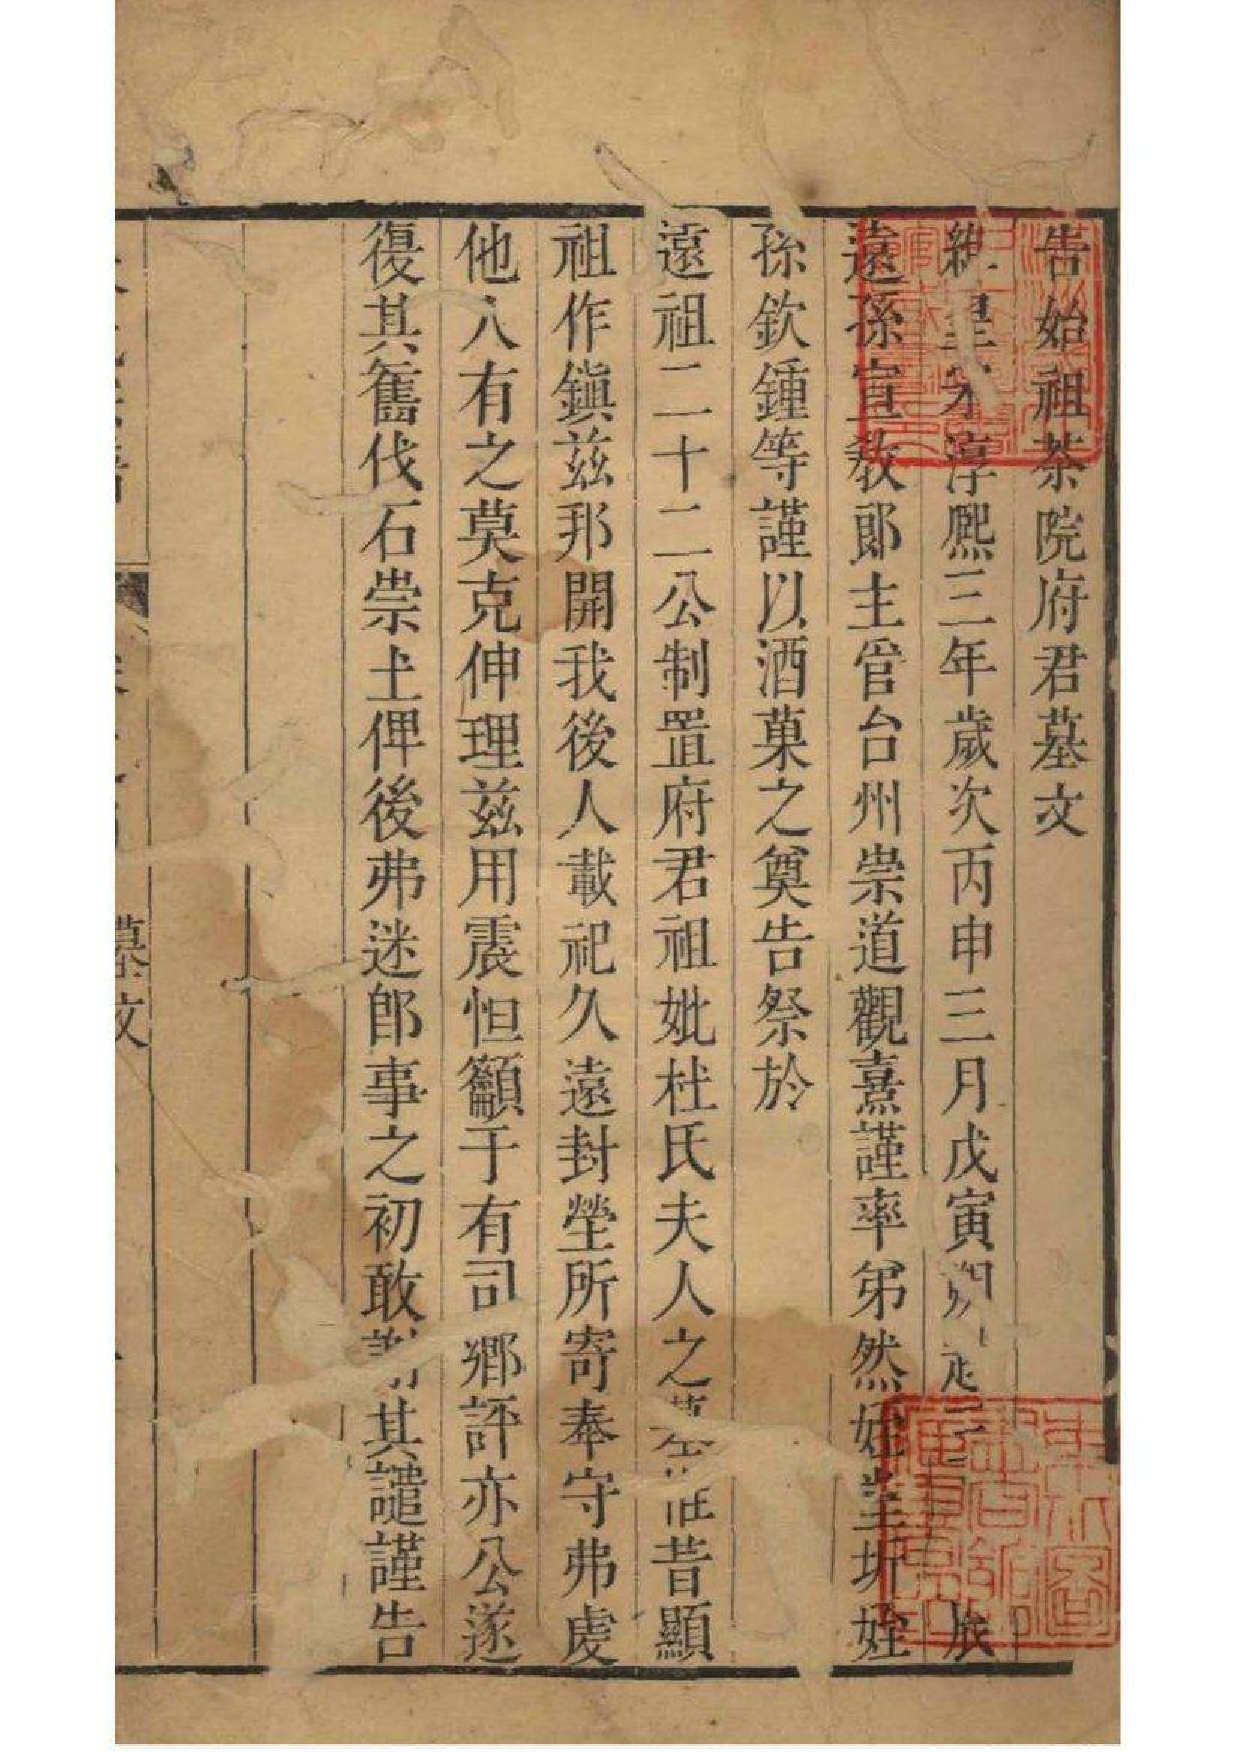 告始祖茶院府君墓文
維皇宋淳熙三年歲次丙申三月戊寅朔越 族
遠孫宣教郎主管台州崇道觀熹謹率弟然姪堂圻姪
孫欽鍾等謹以酒菓之奠告祭於
遠祖二十二公制置府君祖妣杜氏夫人之墓惟昔顯
祖作鎭茲邦開我後人載祀久遠封塋所寄奉守弗虔
他人有之莫克伸理茲用震怛籲于有司鄉評亦公遂
復其舊伐石崇土俾後弗迷卽事之初敢謝其譴謹告
墓文